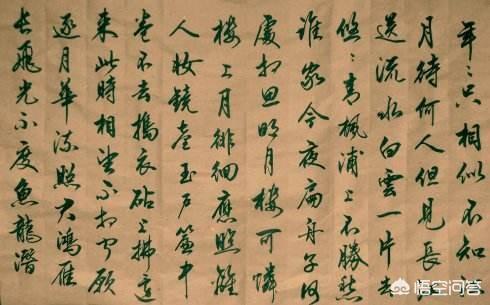 年〻只相似不知江
月待何人但見長
送流水白雲一片去
悠〻青楓浦上不勝愁
誰家今夜扁舟子何
處相思明月樓可憐
樓上月徘徊應照離
人妝鏡臺玉戶簾中
卷不去搗衣砧上拂還
來此時相望不相聞願
逐月華流照君鴻雁
長飛光不度魚龍潛
悟空问答